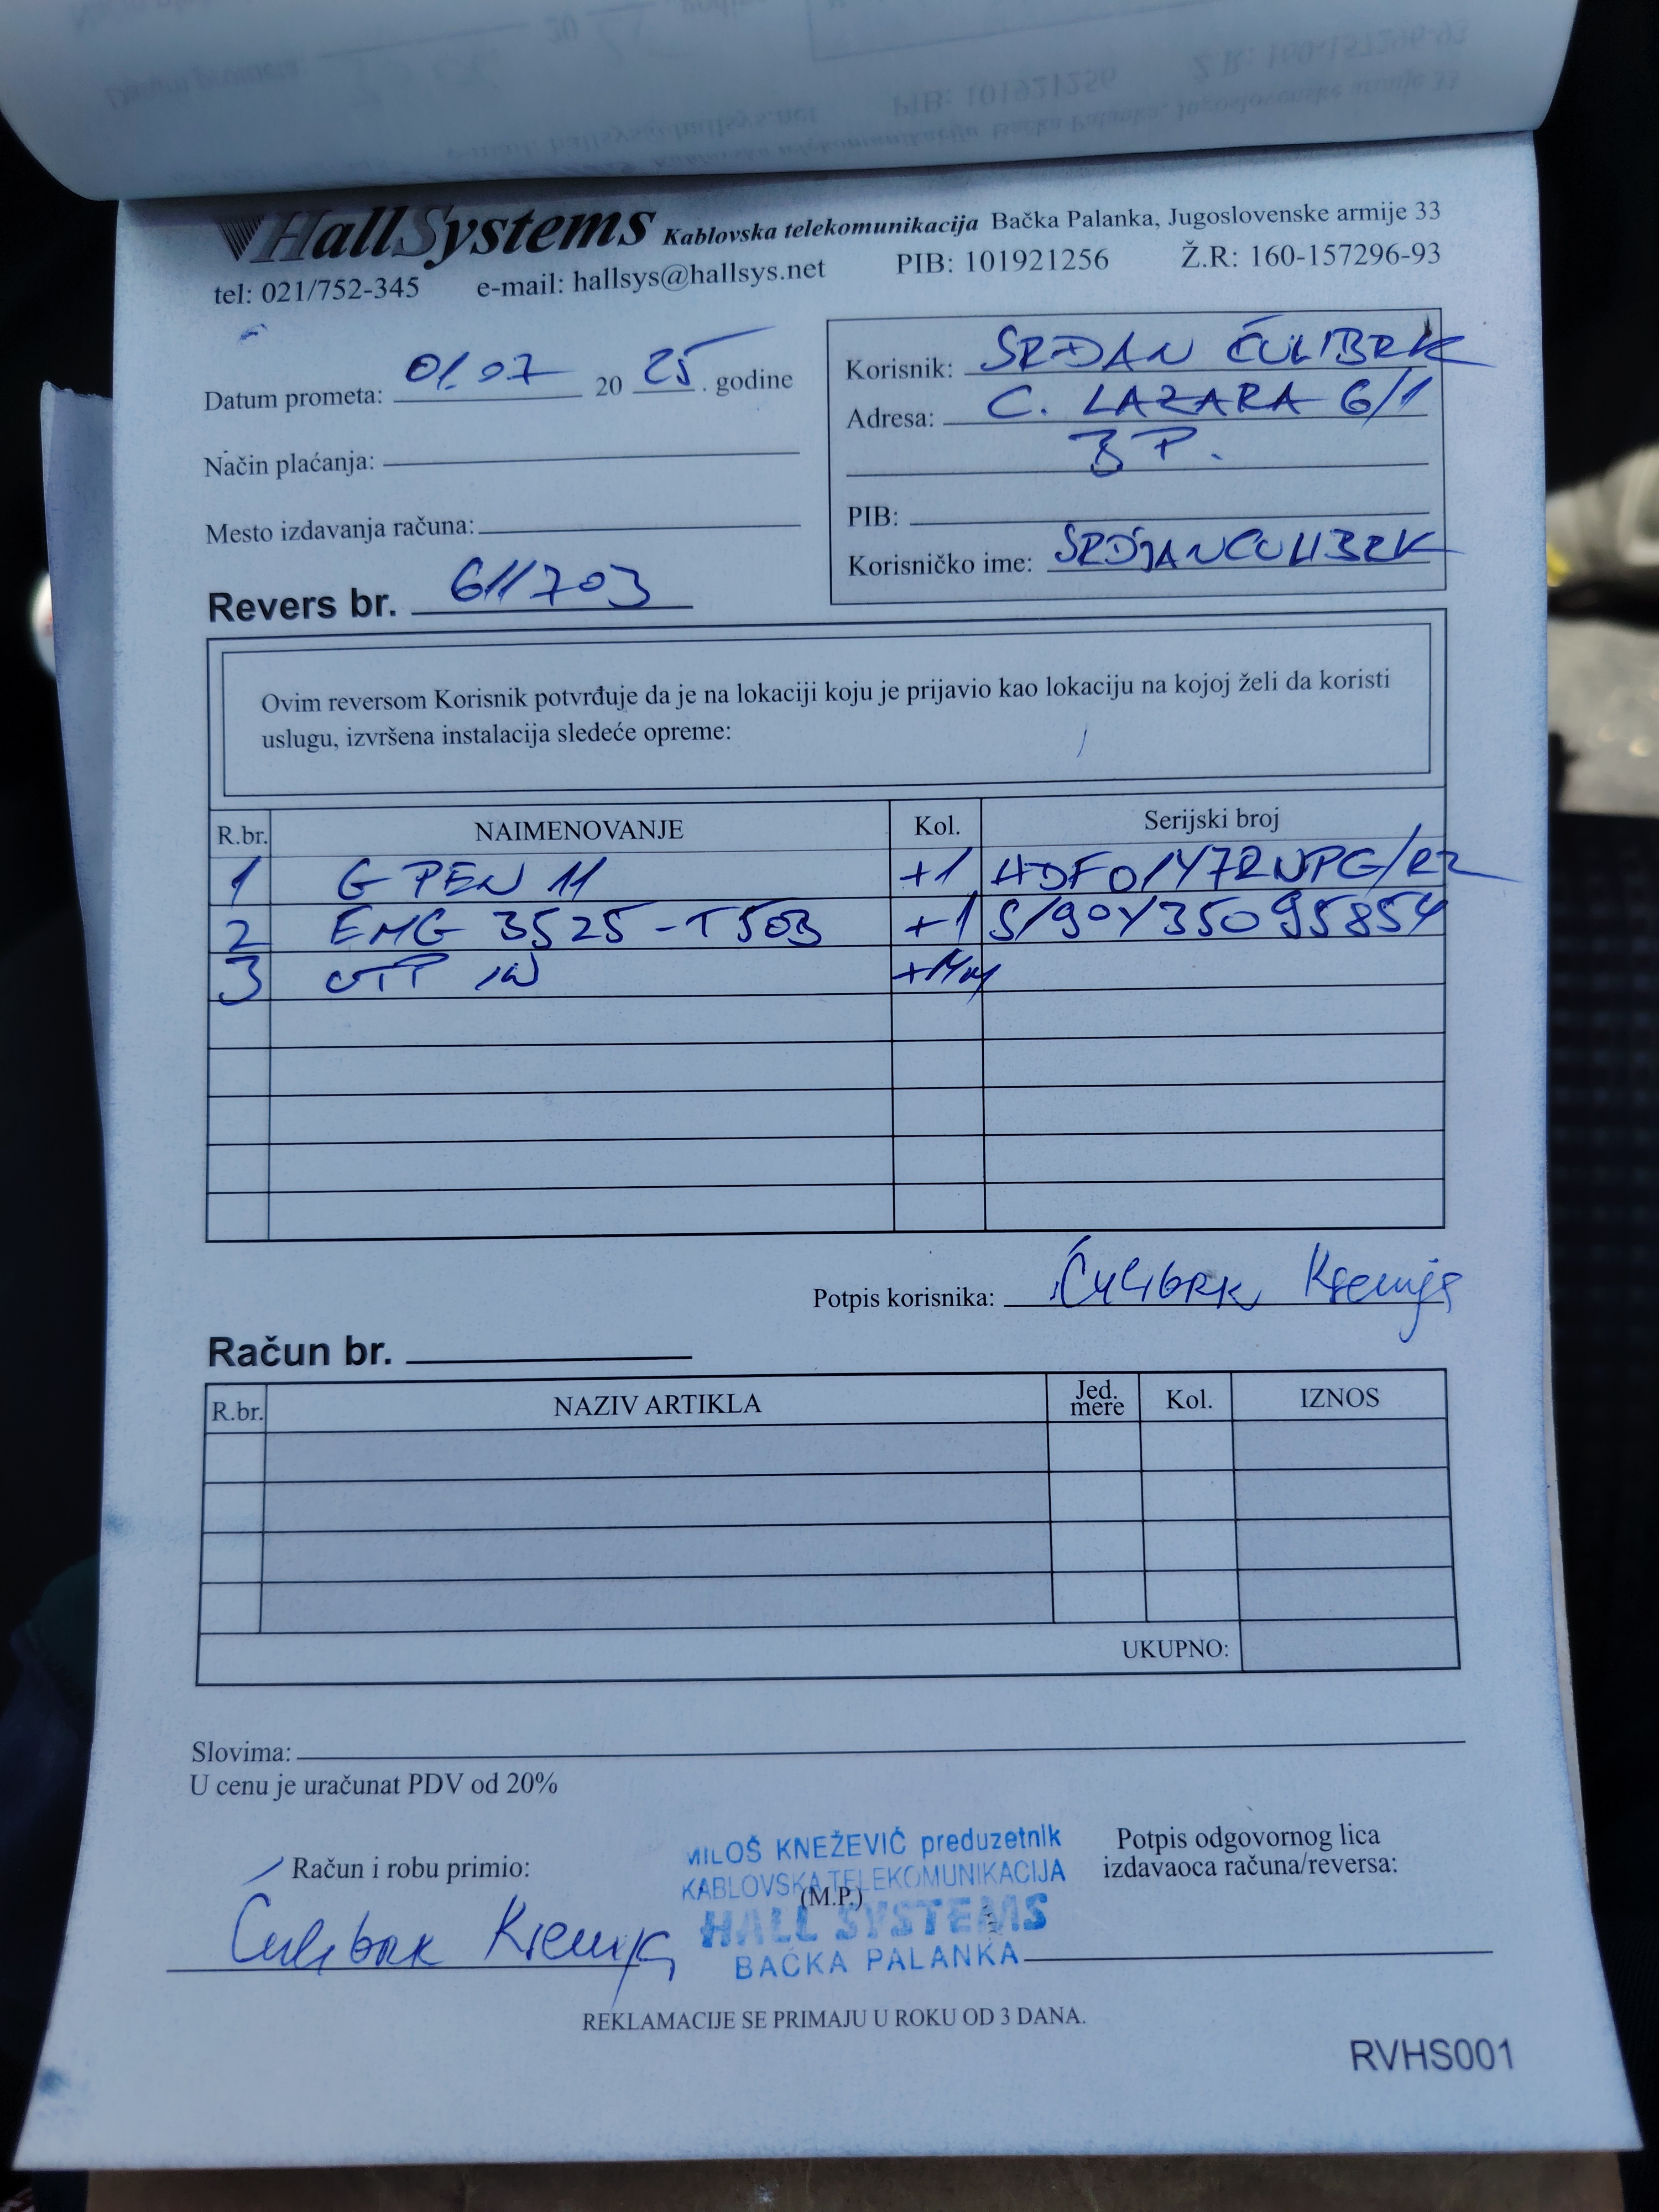 HallSystems Kablovska telekomunikacija Bačka Palanka, Jugoslovenske armije 33
tel: 021/752-345 e-mail: hallsys@hallsys.net PIB: 101921256 Ž.R: 160-157296-93
Datum prometa: 01.07 20 25. godine
Način plaćanja:
Mesto izdavanja računa:
Revers br. 611703
Korisnik: SRĐAN ĆULIBRK
Adresa: C. LAZARA 6/1
B P.
PIB:
Korisničko ime: SRDJANCULIBRK
Ovim reversom Korisnik potvrđuje da je na lokaciji koju je prijavio kao lokaciju na kojoj želi da koristi
uslugu, izvršena instalacija sledeće opreme:
R.br. NAIMENOVANJE Kol. Serijski broj
1 G PEN 11 +1
2 EMG 3525-T50B +1 S190Y35095854
3 UTP
Potpis korisnika: Ćulibrk Ksenija
Račun br.
R.br. NAZIV ARTIKLA Jed. mere Kol. IZNOS
UKUPNO:
Slovima:
U cenu je uračunat PDV od 20%
Račun i robu primio:
Ćulibrk Ksenija
MILOŠ KNEŽEVIĆ preduzetnik
KABLOVSKA TELEKOMUNIKACIJA
(M.P.)
HALL SYSTEMS
BAČKA PALANKA
Potpis odgovornog lica
izdavaoca računa/reversa:
REKLAMACIJE SE PRIMAJU U ROKU OD 3 DANA.
RVHS001